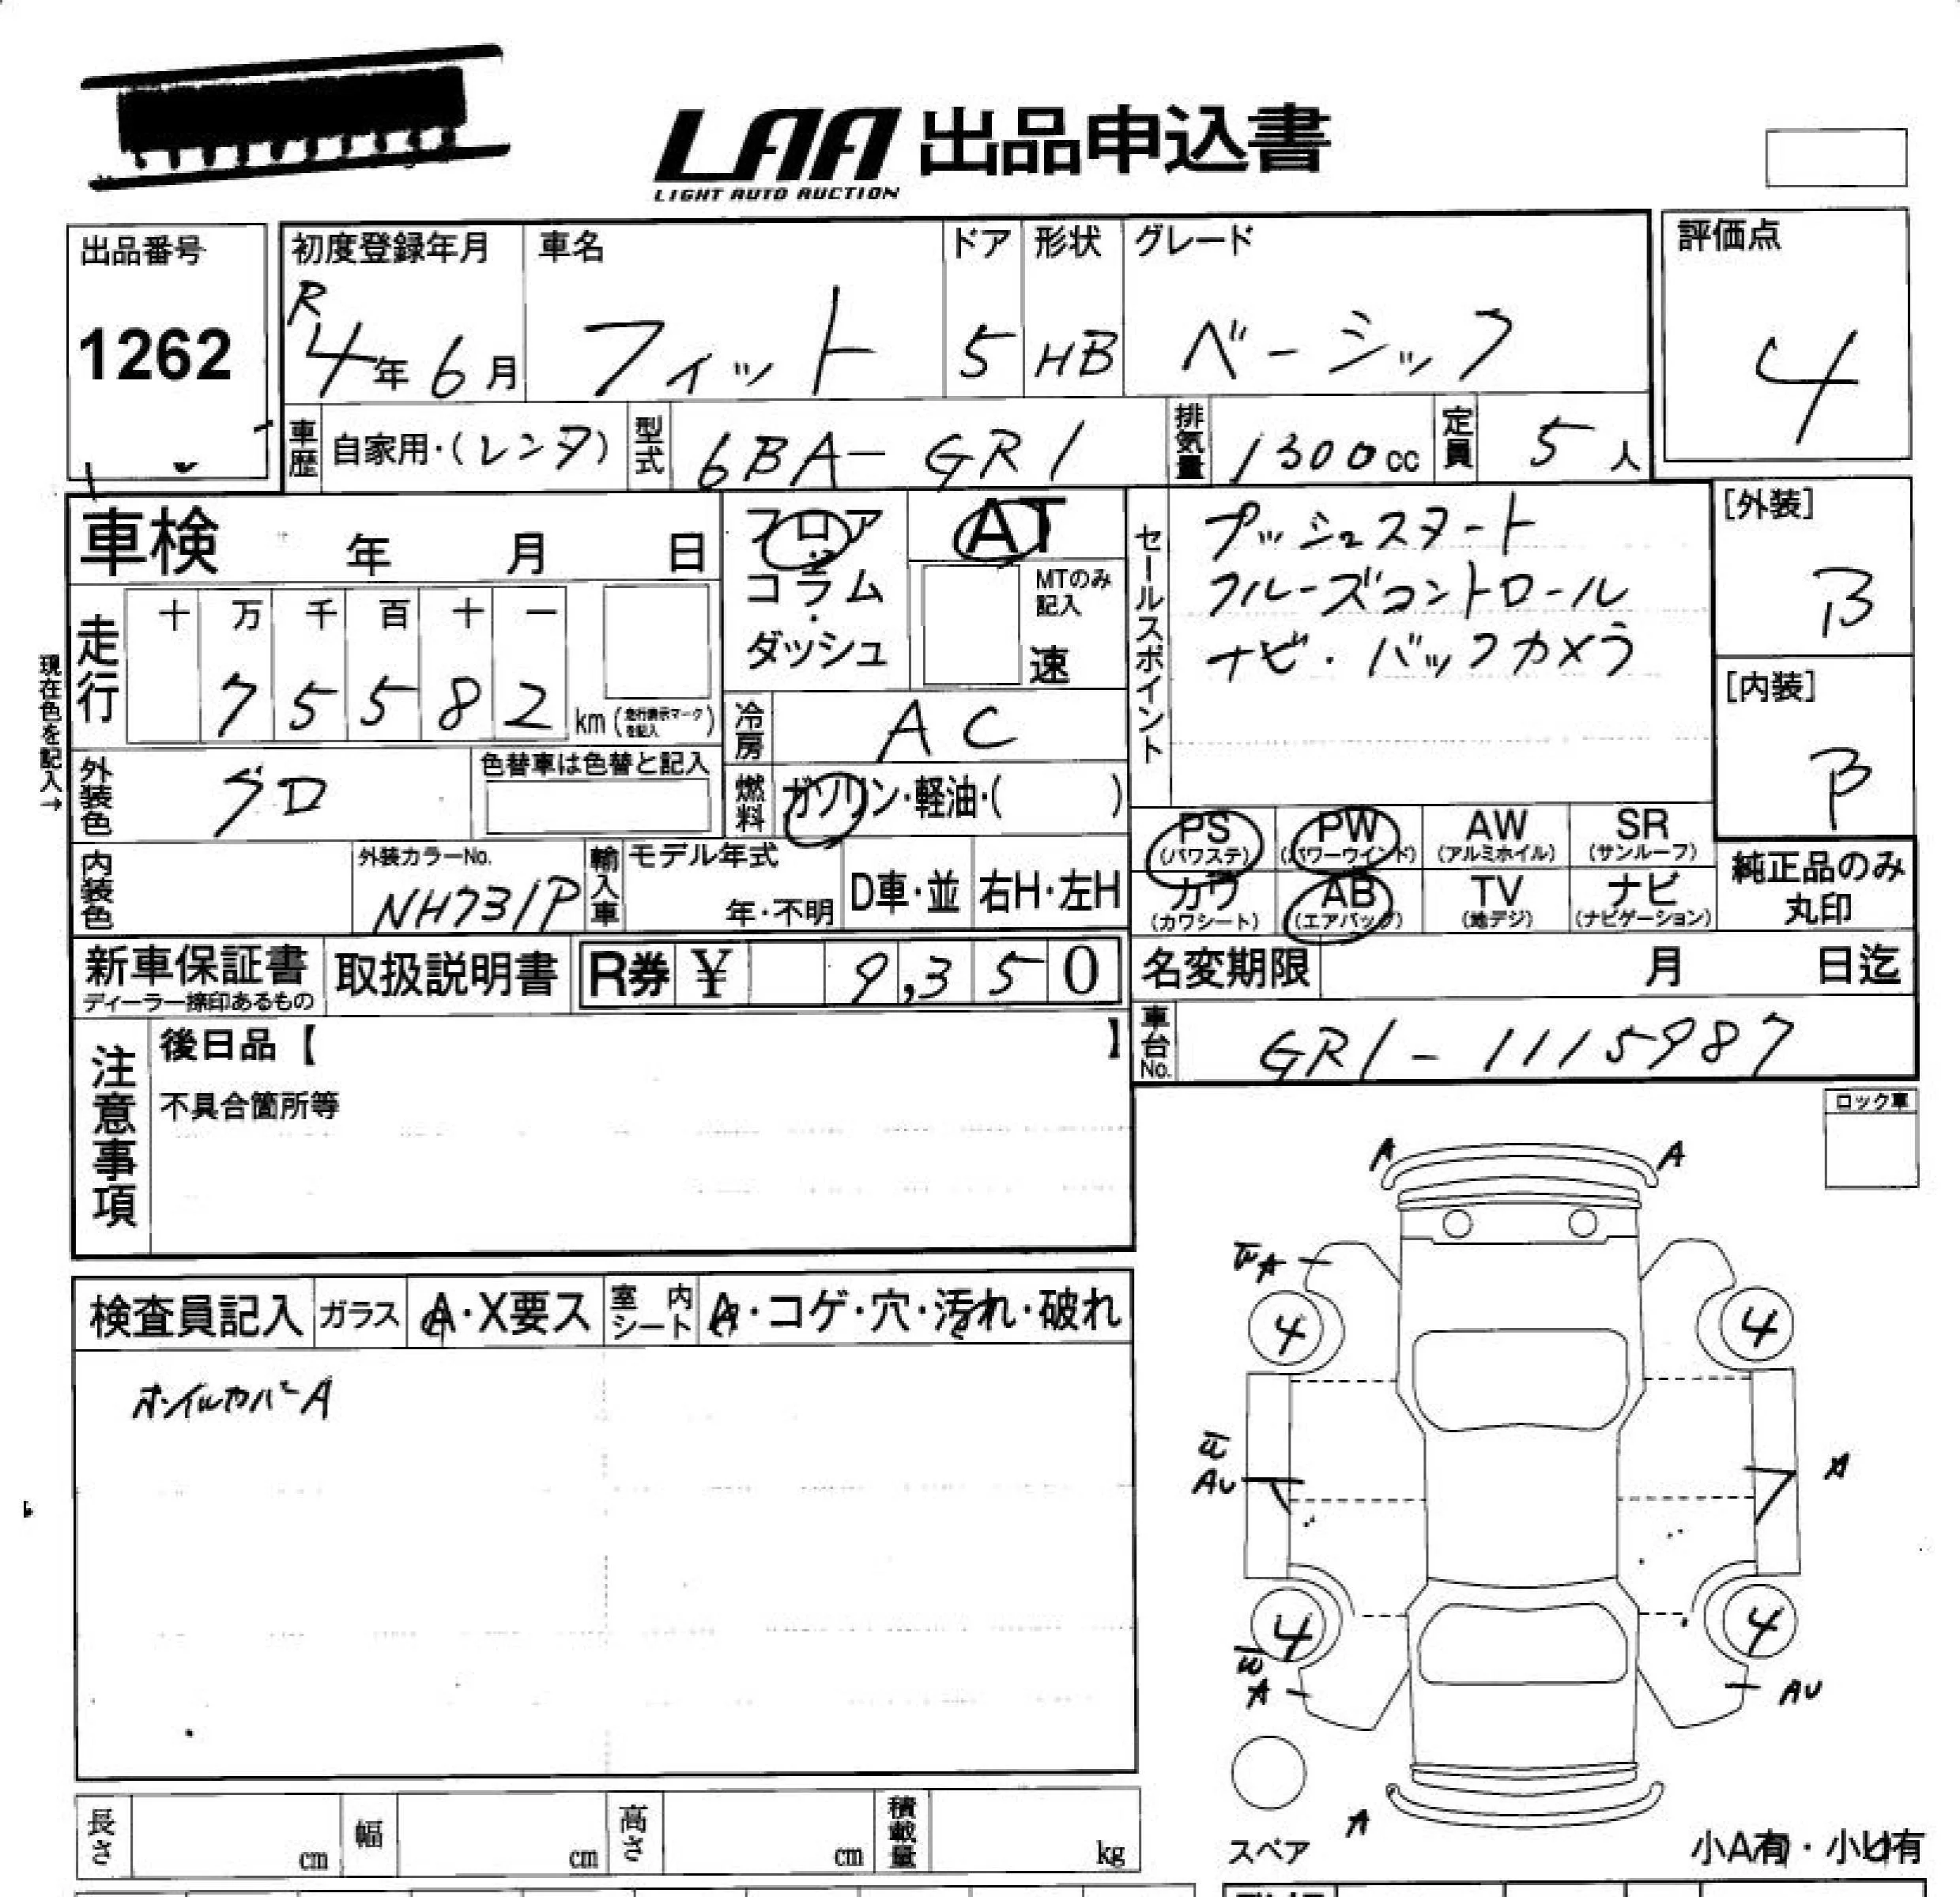 LAA 出品申込書
LIGHT AUTO AUCTION
出品番号
1262
初度登録年月
R
4年6月
車名
フィット
ドア
5
形状
HB
グレード
ベーシック
評価点
4
車歴 自家用・(レンタ)
型式 6BA-GR1
排気量 1300cc
定員 5人
車検 年 月 日
フロア
コラム
ダッシュ
AT
MTのみ
記入
速
セールスポイント
プッシュスタート
クルーズコントロール
ナビ・バックカメラ
[外装]
B
[内装]
B
現在色を記入→
走行
十 万 千 百 十 一
7 5 5 8 2 km (走行表示マークを記入)
冷房 AC
外装色 グロ
色替車は色替と記入
燃料 ガソリン・軽油・( )
PS (パワステ)
PW (パワーウインド)
AW (アルミホイル)
SR (サンルーフ)
カワ (カワシート)
AB (エアバッグ)
TV (地デジ)
ナビ (ナビゲーション)
純正品のみ
丸印
内装色
外装カラーNo.
NH731P
輸入車
モデル年式
年・不明
D車・並
右H・左H
新車保証書
ディーラー捺印あるもの
取扱説明書
R券 ¥ 9,350
名変期限 月 日迄
車台No. GR1-1115987
注意事項
後日品【 】
不具合箇所等
ロック車
検査員記入
ガラス A・X要ス
室内シート A・コゲ・穴・汚れ・破れ
ホイルカバーA
A A
A
4 4
AU A
4 4
A AU
A
スペア
小A有・小U有
長さ cm
幅 cm
高さ cm
積載量 kg